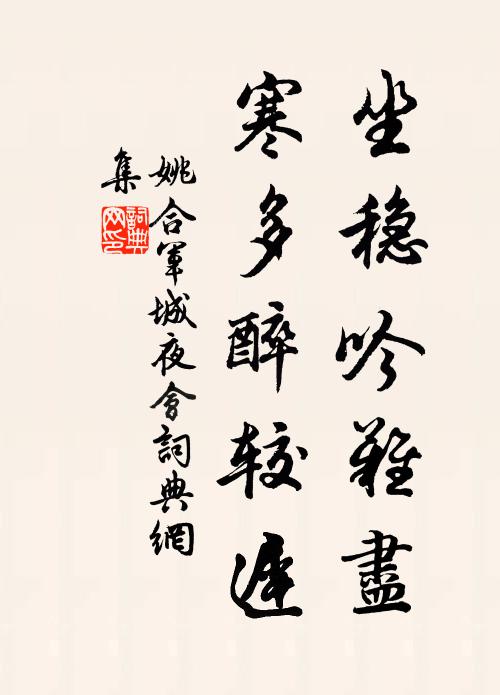 坐穏吟難盡
寒多醉较遲
姚合軍城夜會詞典網
集
詞典網印